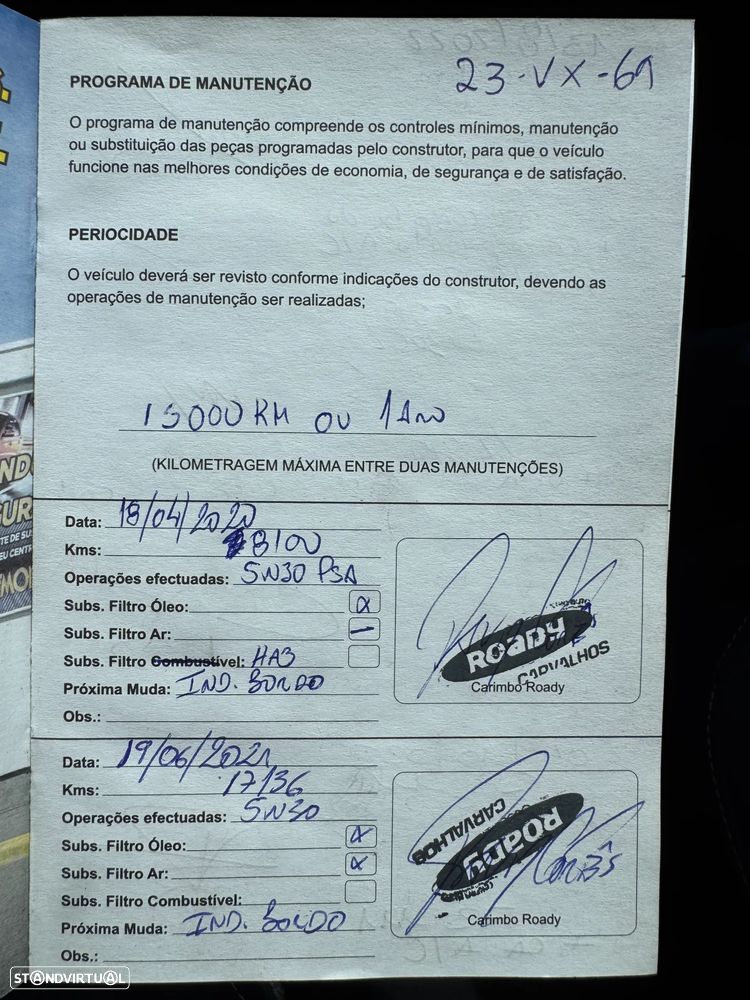 23-VX-69
PROGRAMA DE MANUTENÇÃO
O programa de manutenção compreende os controles mínimos, manutenção
ou substituição das peças programadas pelo construtor, para que o veículo
funcione nas melhores condições de economia, de segurança e de satisfação.
PERIOCIDADE
O veículo deverá ser revisto conforme indicações do construtor, devendo as
operações de manutenção ser realizadas;
15000 KM ou 1 Ano
(KILOMETRAGEM MÁXIMA ENTRE DUAS MANUTENÇÕES)
Data: 18/04/2020
Kms: 8100
Operações efectuadas: 5W30 PSA
Subs. Filtro Óleo: X
Subs. Filtro Ar: —
Subs. Filtro Combustível: HAB
Próxima Muda: IND. BORDO
Obs.:
ROADY
CARVALHOS
Carimbo Roady
Data: 19/06/2021
Kms: 17136
Operações efectuadas: 5W30
Subs. Filtro Óleo: X
Subs. Filtro Ar: X
Subs. Filtro Combustível:
Próxima Muda: IND. BORDO
Obs.:
ROADY
CARVALHOS
Carimbo Roady
STANDVIRTUAL